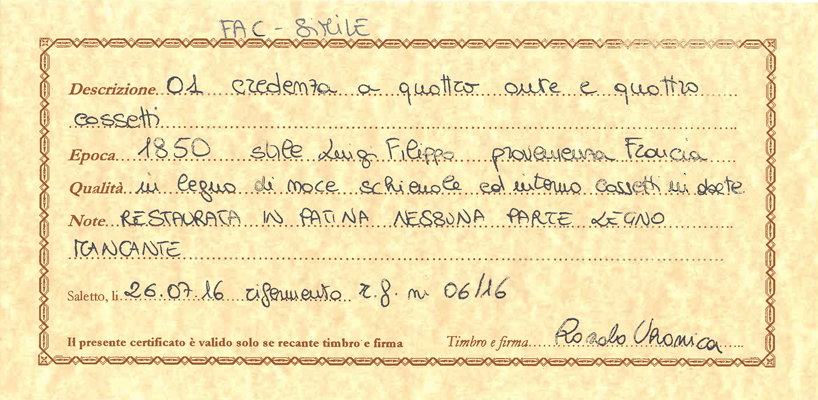 FAC - SIMILE
Descrizione 01 credenza a quattro ante e quattro
cassetti
Epoca 1850 stile Luigi Filippo provenienza Francia
Qualità in legno di noce schienale ed interno cassetti in
Note RESTAURATA IN PATINA NESSUNA PARTE LEGNO
MANCANTE
Saletto, li 26.07.16 riferimento r.f. n 06/16
Il presente certificato è valido solo se recante timbro e firma Timbro e firma Veronica